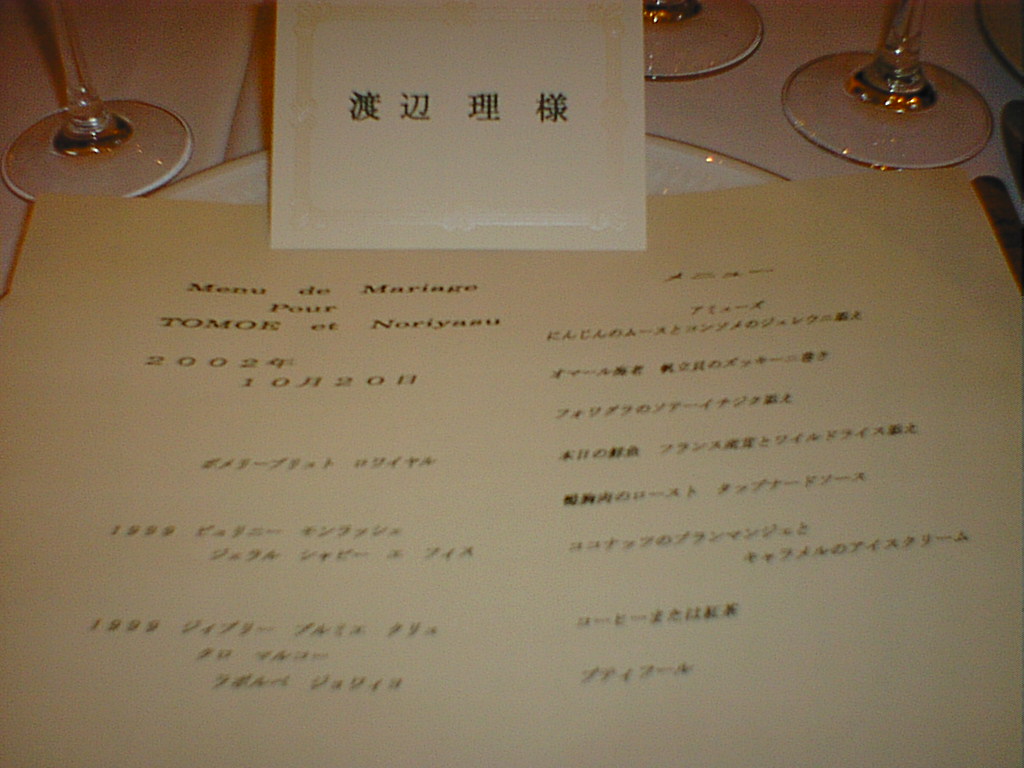 渡辺 理 様
Menu de Mariage
Pour
TOMOE et Noriyasu
2002年
10月20日
ポメリーブリュット ロワイヤル
1999 ピュリニー モンラッシェ
ジェラル シャビー エ フィス
1999 ジィブリー プルミエ クリュ
クロ マルコー
ラボルベ ジョワイヨ
メニュー
アミューズ
にんじんのムースとコンソメのジュレウニ添え
オマール海老 帆立貝のズッキーニ巻き
フォワグラのソテーイチジク添え
本日の鮮魚 フランス産茸とワイルドライス添え
鴨胸肉のロースト タップナードソース
ココナッツのブランマンジェと
キャラメルのアイスクリーム
コーヒーまたは紅茶
プティフール